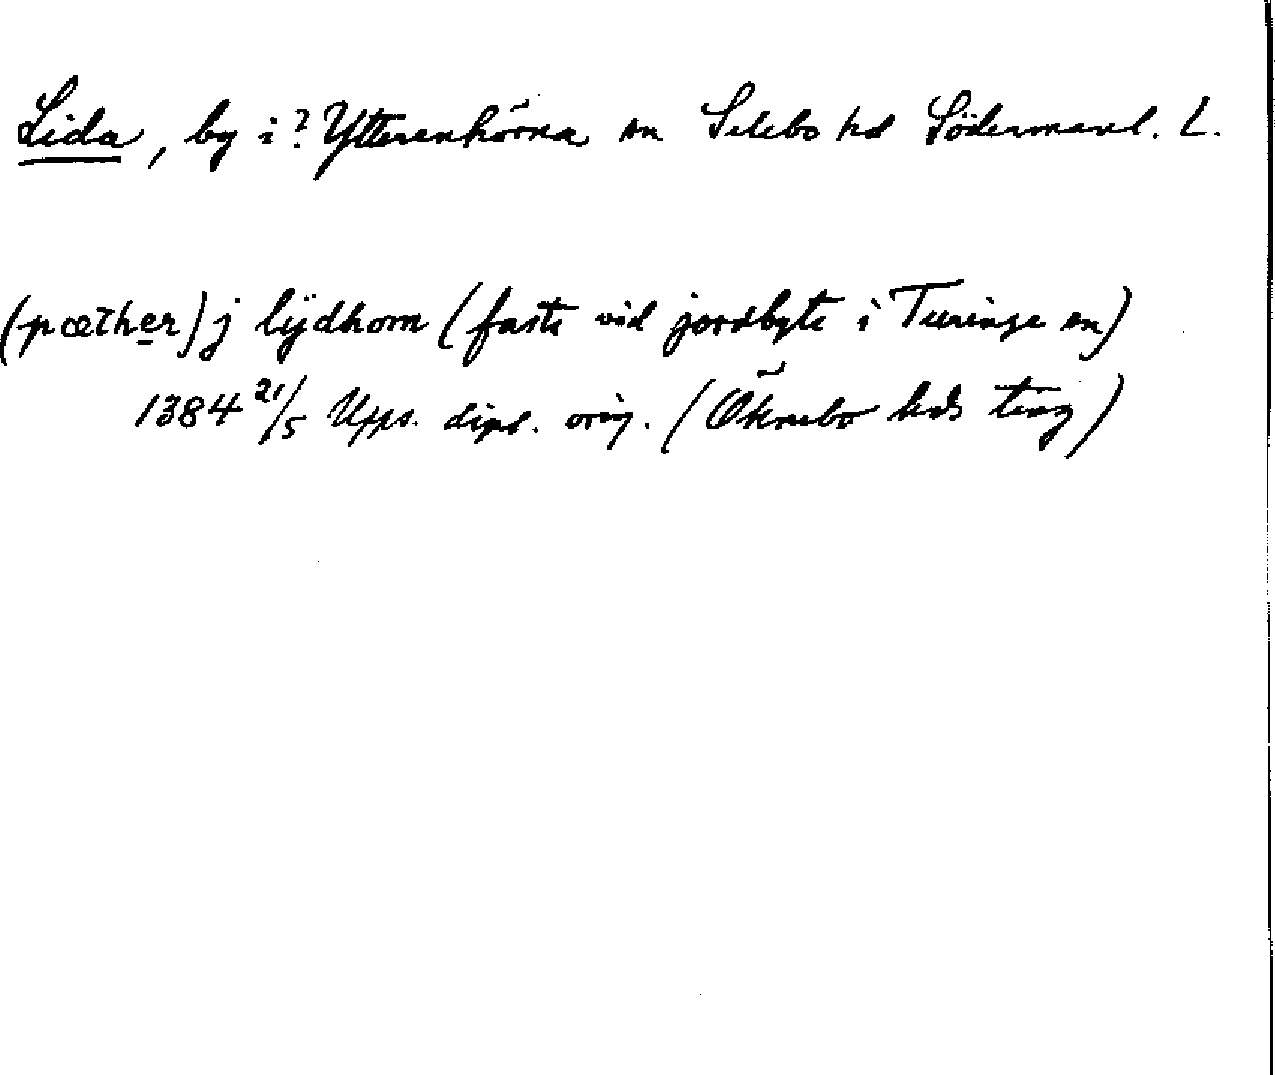 Lida, by i? Ytterenhörna sn Selebo hd Södermanl. L.
(pæther) j lÿdhom (faste vid jordbyte i Turinge sn)
1384 21/5 Upps. dipl. orig. (Öknebo hds ting)